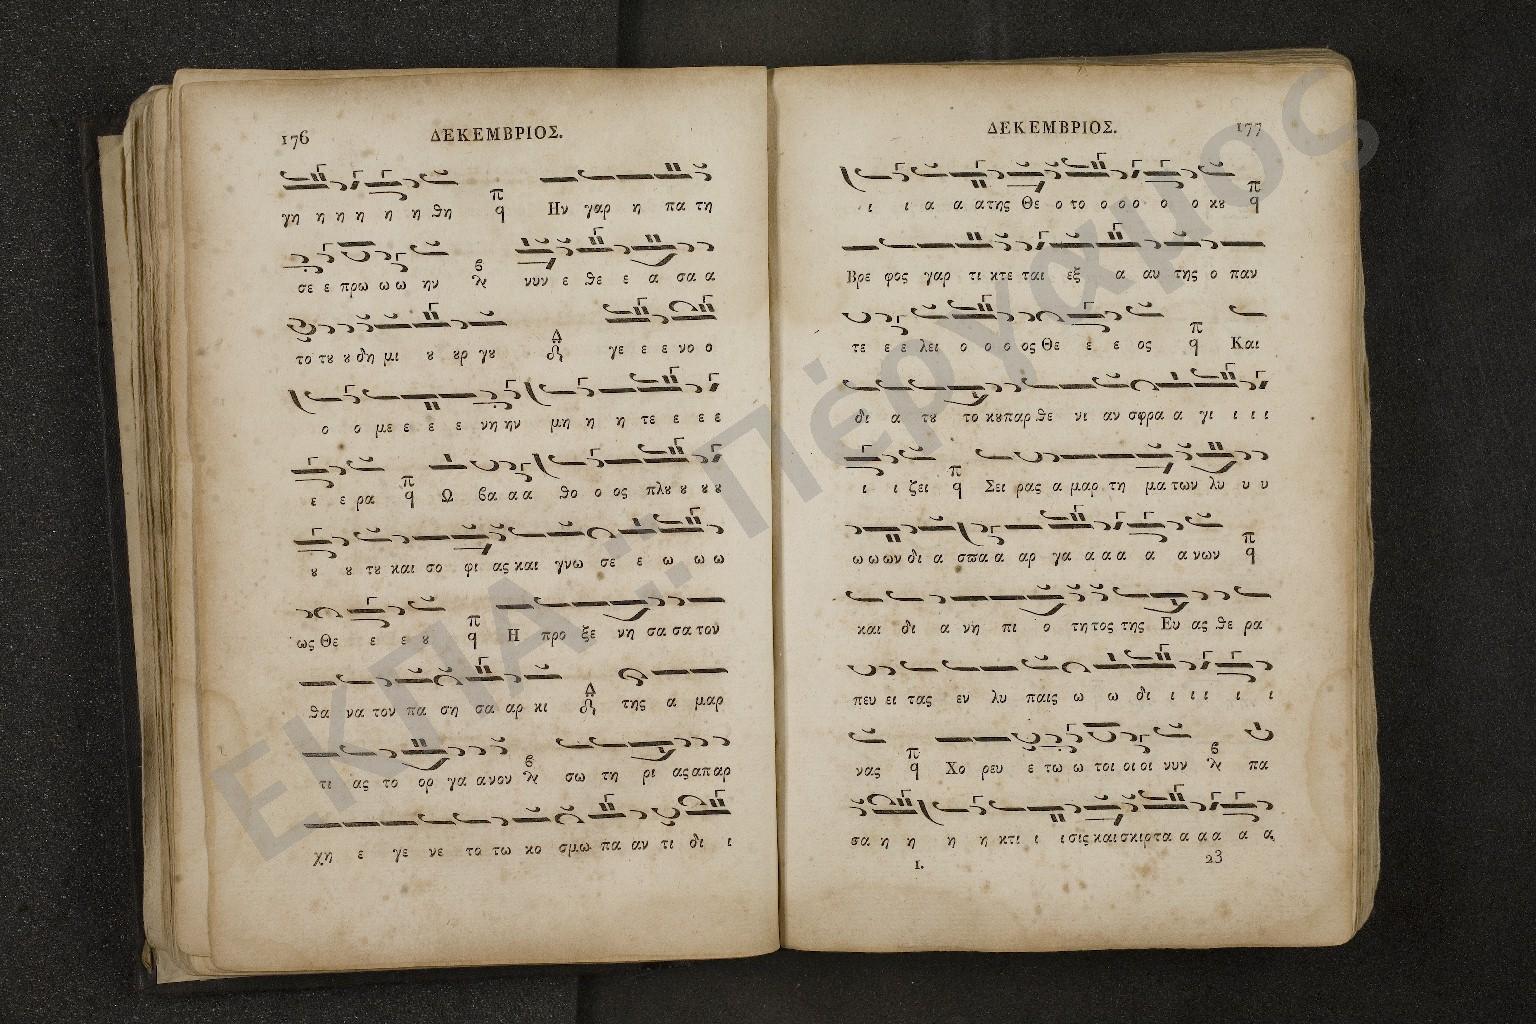 176
ΔΕΚΕΜΒΡΙΟΣ.
γη η η η η η θη π q Ην γαρ η πα τη
σε ε πρω ω ω ην νυν ε θε ε α σα α
το τȣ ȣ δη μι ȣ ȣρ γȣ Δ γε ε ε νο ο
ο ο με ε ε ε νη ην μη η η τε ε ε ε
ε ε ρα π q Ω βα α α θο ο ος πλȣ ȣ ȣ ȣ
ȣ ȣ τȣ και σο φι ας και γνω σε ε ω ω ω
ως Θε ε ε ȣ π q Η προ ξε νη σα σα τον
θα να τον πα ση σα αρ κι Δ της α μαρ
τι ας το ορ γα α νον σω τη ρι ας απαρ
χη ε γε νε το τω κο σμω πα αν τι δι ι
ΔΕΚΕΜΒΡΙΟΣ.
177
ι ι α α α της Θε ο το ο ο ο ο ο κȣ π q
Βρε φος γαρ τι κτε ται εξ α αυ της ο παν
τε ε ε λει ο ο ο ος Θε ε ε ος π q Και
δι α τȣ το κȣπαρ θε νι αν σφρα α γι ι ι ι
ι ι ζει π q Σει ρας α μαρ τη μα των λυ υ υ
ω ω ων δι α σπα α αρ γα α α α α α νων π q
και δι α νη πι ο τη τος της Ευ ας θε ρα
πευ ει τας εν λυ παις ω ω δι ι ι ι ι ι
νας π q Χο ρευ ε τω ω τοι οι οι νυν πα
σα η η η η κτι ι ι σις και σκιρτα α α α α α,
1. 23
ΕΚΠΑ :: Πέργαμος